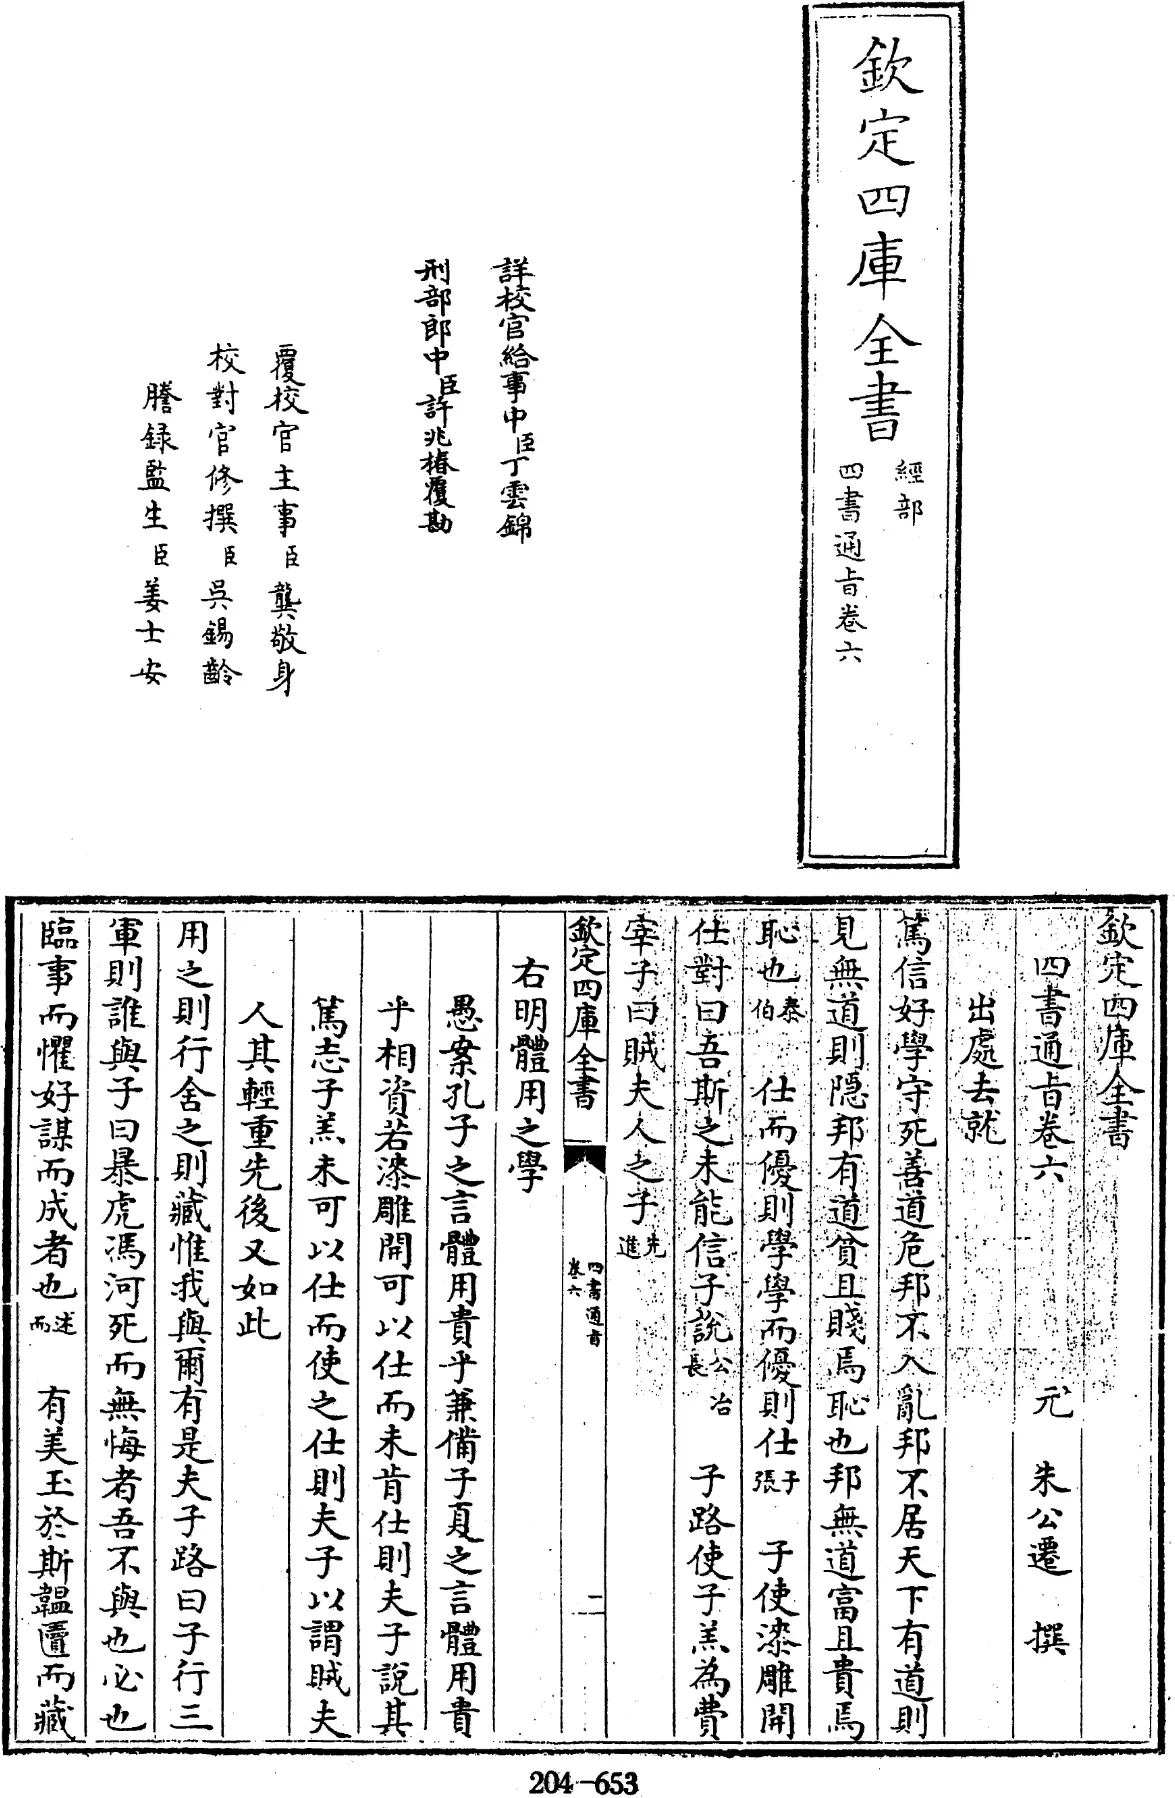 欽定四庫全書
經部
四書通旨卷六
詳校官給事中臣丁雲錦
刑部郎中臣許兆椿覆勘
覆校官主事臣龔敬身
校對官修撰臣吳錫齡
謄録監生臣姜士安
欽定四庫全書
四書通旨卷六 元 朱公遷 撰
出處去就
篤信好學守死善道危邦不入亂邦不居天下有道則
見無道則隠邦有道貧且賤焉恥也邦無道富且貴焉
恥也泰伯 仕而優則學學而優則仕子張 子使漆雕開
仕對曰吾斯之未能信子說公冶長 子路使子羔為費
宰子曰賊夫人之子先進
欽定四庫全書 四書通旨卷六 二
右明體用之學
愚案孔子之言體用貴乎兼備子夏之言體用貴
乎相資若漆雕開可以仕而未肯仕則夫子說其
篤志子羔未可以仕而使之仕則夫子以謂賊夫
人其輕重先後又如此
用之則行舍之則藏惟我與爾有是夫子路曰子行三
軍則誰與子曰暴虎馮河死而無悔者吾不與也必也
臨事而懼好謀而成者也述而 有美玉於斯韞匵而藏
204-653